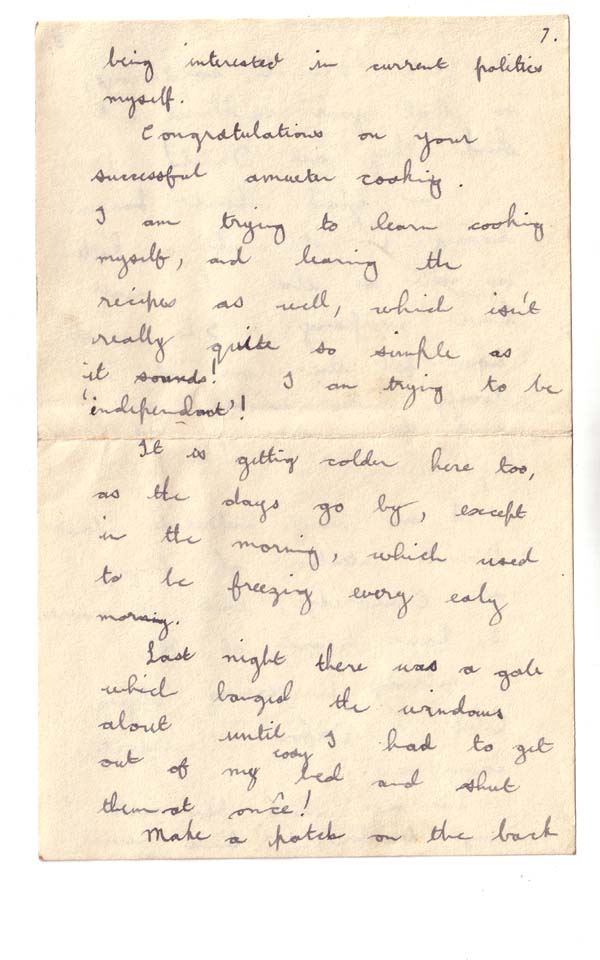 7.
being interested in current politics
myself.
Congratulations on your
successful amueter cooking.
I am trying to learn cooking
myself, and learing the
recipes as well, which isn't
really quite so simple as
it sounds! I am trying to be
'independant'!
It is getting colder here too,
as the days go by, except
in the morning, which used
to be freezing every ealy
morning.
Last night there was a gale
which banged the windows
about until I had to get
out of my cosy bed and shut
them at once!
Make a patch on the back